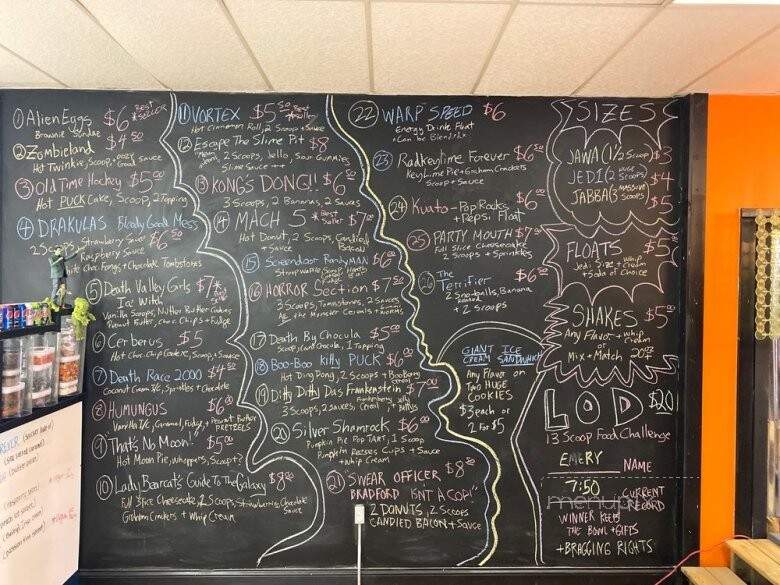 ① Alien Eggs $6 *Best Seller
Brownie Sundae
② Zombieland $4 50
Hot Twinkie, Scoop, Sauce
③ Old Time Hockey $5 00
Hot PUCK Cake, Scoop, 2 Topping
④ DRAKULAS Bloody Good Mess
2 Scoops, Strawberry Sauce $6 50
Raspberry Sauce
White Choc Fangs + Chocolate Tombstones
⑤ Death Valley Girls $7
Ice Witch
Vanilla Scoops, Nutter Butter Cookies
Peanut Butter, Choc Chips + Fudge
⑥ Cerberus $5
Hot Choc Chip Cookie, Scoop, + Sauce
⑦ Death Race 2000 $4 50
Coconut Cream I/C, Sprinkles + Chocolate
⑧ HUMUNGUS $6 00
Vanilla I/C, Caramel, Fudge, + Peanut Butter
PRETZELS
⑨ "That's No Moon!" $5 00
Hot Moon Pie, Whoppers, Scoop!
⑩ Lady Bearcat's Guide To The Galaxy $8 50
Full Slice Cheesecake, 2 Scoops, Strawberries, Chocolate
Sauce
Graham Crackers + Whip Cream
⑪ VORTEX $5 50 *Best Seller
Hot Cinnamon Roll, 2 Scoop + Sauce
⑫ Escape The Slime Pit $8
2 Scoops, Jello, Sour Gummies
Slime Sauce
⑬ KONG'S DONG!! $6 00
3 Scoops, 2 Bananas, 2 Sauces
⑭ MACH 5 *Best Seller $7
Hot Donut, 2 Scoops, Candied
Bacon
+ Sauce
⑮ Screendoor Randyman $6
Stroopwaffle
⑯ HORROR Section $7 50
3 Scoops, Tombstones, 2 Sauces
All the Monster Cereals + Worms
⑰ Death By Chocula $5 00
Scoop, Count Chocula, 1 Topping
⑱ Boo-Boo Kitty PUCK $6 00
Hot Ding Pong, 2 Scoops + Boo Berry
⑲ Ditty Ditty Das Frankenstein $7 00
3 Scoops, 2 Sauces, Frankenberry Cereal, Jelly Bellys
⑳ Silver Shamrock $6 00
Pumpkin Pie Pop Tart, 1 Scoop
Pumpkin Reeses Cups + Sauce
+ Whip Cream
㉑ SWEAR OFFICER $8 50
BRADFORD ISN'T A COP!"
2 DONUTS, 2 SCOOPS
CANDIED BACON + Sauce
㉒ WARP SPEED $6
Energy Drink Float
*Can be Blended*
㉓ Radkeylime Forever $6 50
Key Lime Pie + Graham Crackers
Scoop + Sauce
㉔ Kuato - Pop Rocks $6
+ Pepsi Float
㉕ PARTY MOUTH $7
Full Slice Cheesecake
2 Scoops + Sprinkles
㉖ The Terrifier $6 50
2 Snowballs, Banana
+ 2 Scoops
GIANT ICE
CREAM SANDWHICH
Any Flavor on
Two HUGE
COOKIES
$3 each or
2 For $5
SIZES
JAWA (1 1/2 Scoop) $3
JEDI (2 Scoops) $4
JABBA (3 MASSIVE Scoops) $5
FLOATS $5
Jedi Size + Whip Cream
+ Soda of Choice
SHAKES $5
Any Flavor + Whip Cream
Mix + Match 20oz
LOD $20
13 Scoop Food Challenge
EMERY NAME
7:50 CURRENT
RECORD
WINNER KEEPS
THE BOWL + GIFTS
+ BRAGGING RIGHTS
menupix